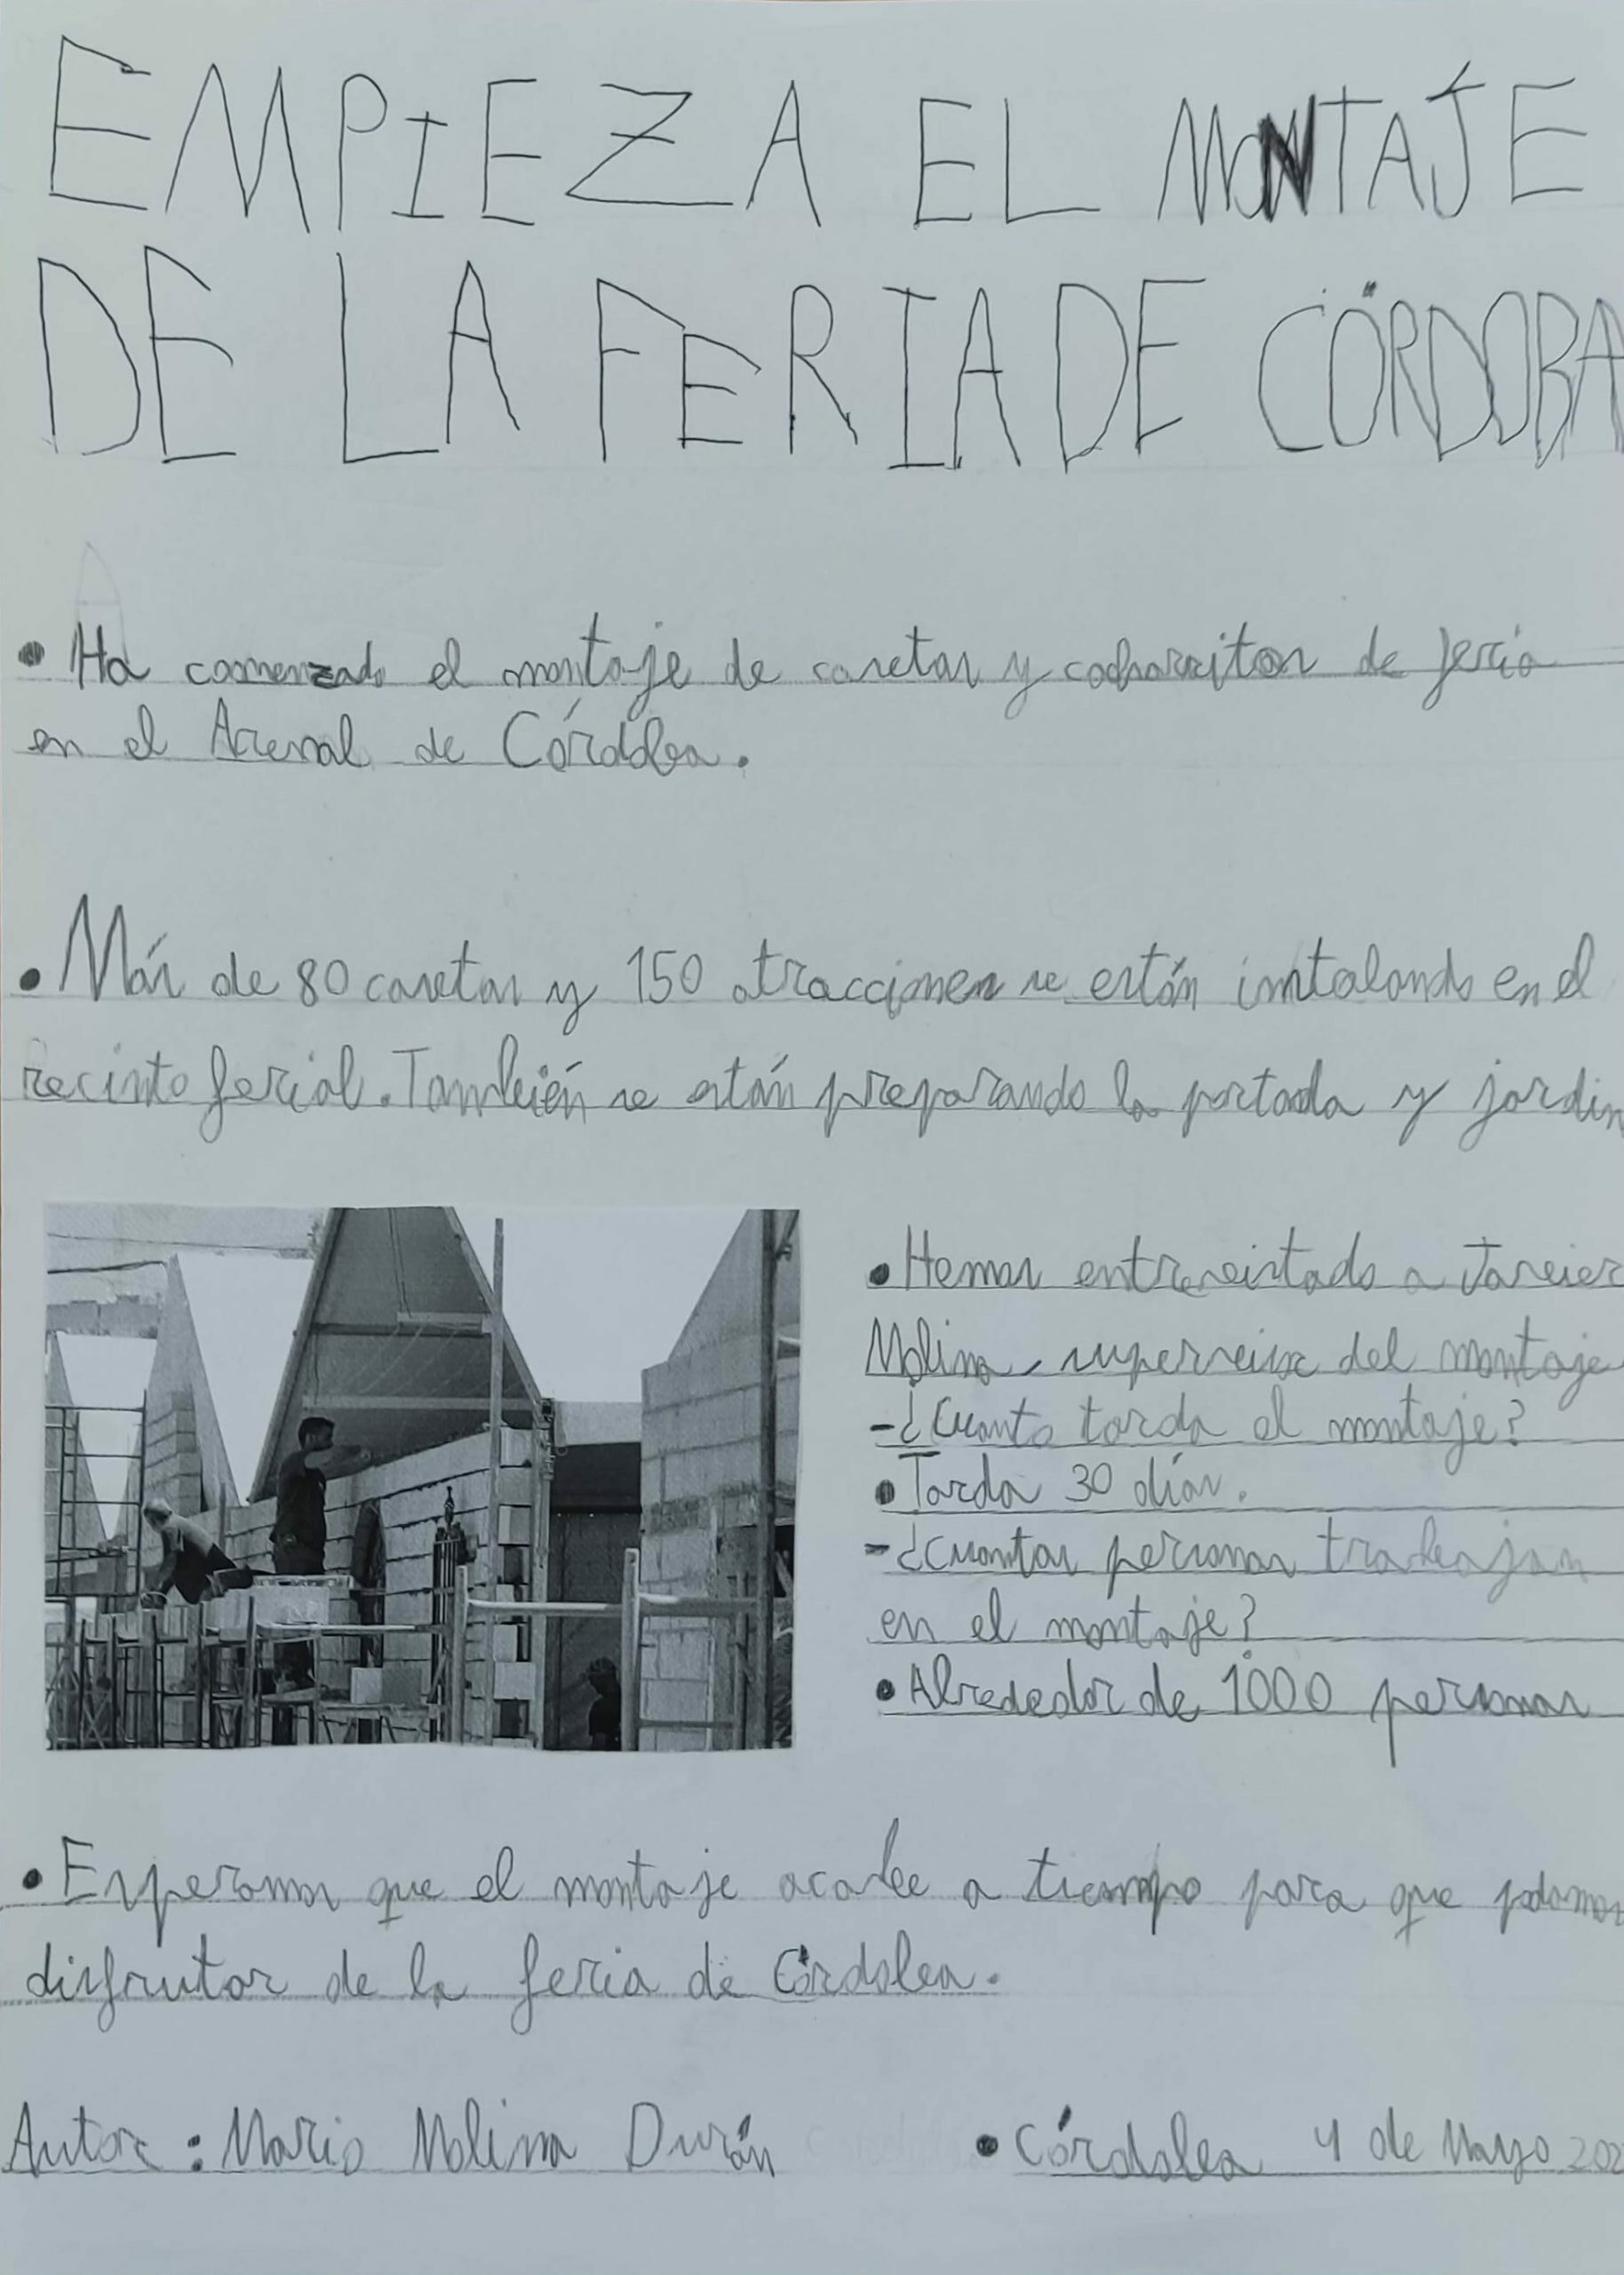 EMPIEZA EL MONTAJE
DE LA FERIA DE CÓRDOBA
• Ha comenzado el montaje de casetas y cacharritos de feria
en el Arenal de Córdoba.
• Más de 80 casetas y 150 atracciones se están instalando en el
recinto ferial. También se están preparando la portada y jardin
• Hemos entrevistado a Javier
Molina, supervisor del montaje
- ¿Cuanto tarda el montaje?
• Tarda 30 días.
- ¿Cuantas personas trabajan
en el montaje?
• Alrededor de 1000 personas
• Esperamos que el montaje acabe a tiempo para que podamos
disfrutar de la feria de Córdoba.
Autor: Mario Molina Durán
• Córdoba 4 de Mayo 202